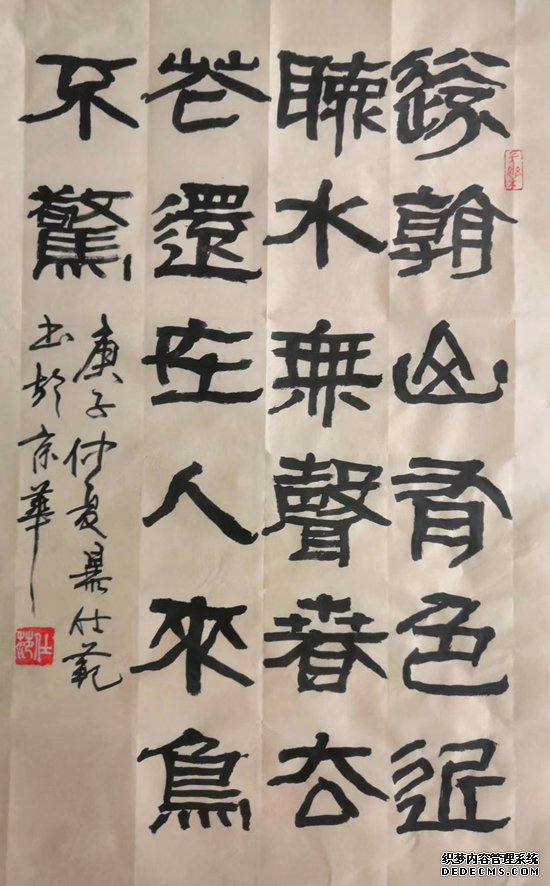 遠看山有色近
聽水無聲春去
花還在人來鳥
不驚
庚子仲夏仕範
书於京華
仕范
织梦内容管理系统
DEDECMS.COM